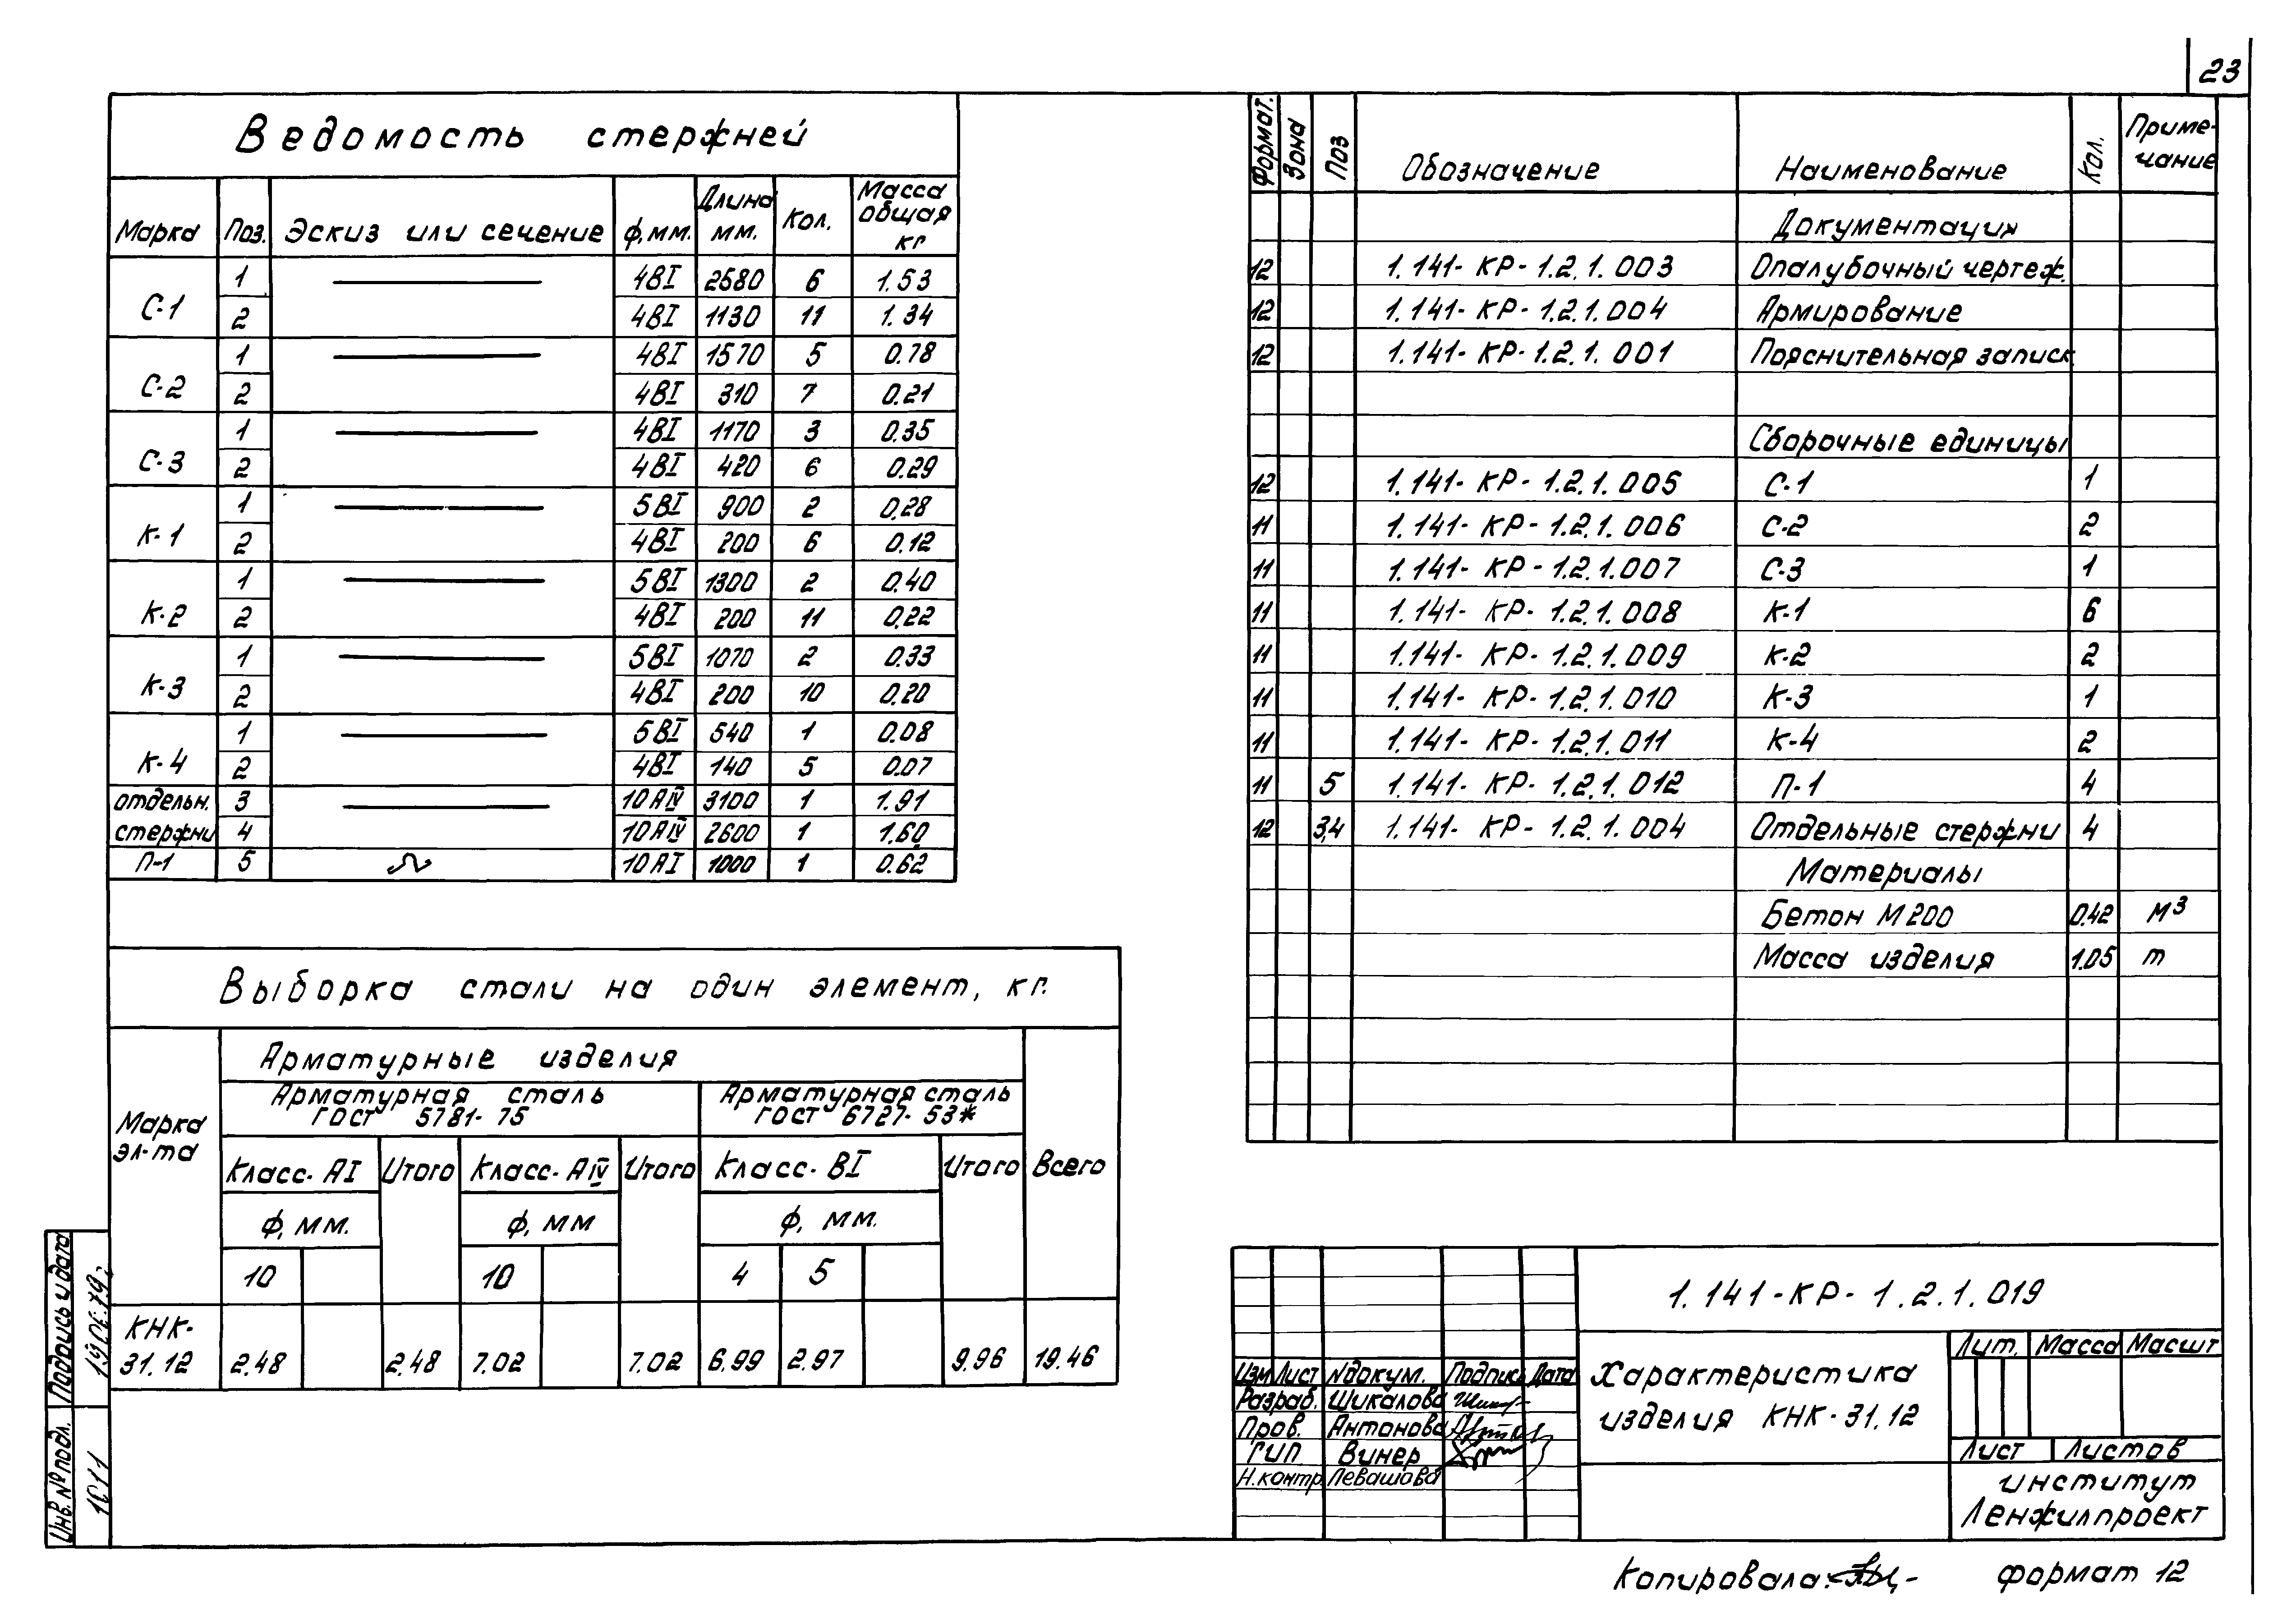 23
Ведомость стержней
Марка Поз. Эскиз или сечение ф,мм. Длина мм. Кол. Масса общая кг
С-1 1 4ВI 2580 6 1.53
2 4ВI 1130 11 1.34
С-2 1 4ВI 1570 5 0.78
2 4ВI 310 7 0.21
С-3 1 4ВI 1170 3 0.35
2 4ВI 420 6 0.29
К-1 1 5ВI 900 2 0.28
2 4ВI 200 6 0.12
К-2 1 5ВI 1300 2 0.40
2 4ВI 200 11 0.22
К-3 1 5ВI 1070 2 0.33
2 4ВI 200 10 0.20
К-4 1 5ВI 540 1 0.08
2 4ВI 140 5 0.07
отдельн. 3 10АIV 3100 1 1.91
стержни 4 10АIV 2600 1 1.60
П-1 5 10АI 1000 1 0.62
Выборка стали на один элемент, кг.
Марка эл-та
Арматурные изделия
Арматурная сталь ГОСТ 5781-75
Арматурная сталь ГОСТ 6727-53*
Класс-АI Итого Класс-АIV Итого Класс-ВI Итого Всего
ф, мм. ф, мм ф, мм.
10 10 4 5
КНК-
31.12 2.48 2.48 7.02 7.02 6.99 2.97 9.96 19.46
Формат. Зона Поз Обозначение Наименование Кол. Приме-
чание
Документация
12 1.141-КР-1.2.1.003 Опалубочный чертеж.
12 1.141-КР-1.2.1.004 Армирование
12 1.141-КР-1.2.1.001 Пояснительная записк
Сборочные единицы
12 1.141-КР-1.2.1.005 С-1 1
11 1.141-КР-1.2.1.006 С-2 2
11 1.141-КР-1.2.1.007 С-3 1
11 1.141-КР-1.2.1.008 К-1 6
11 1.141-КР-1.2.1.009 К-2 2
11 1.141-КР-1.2.1.010 К-3 1
11 1.141-КР-1.2.1.011 К-4 2
11 5 1.141-КР-1.2.1.012 П-1 4
12 3,4 1.141-КР-1.2.1.004 Отдельные стержни 4
Материалы
Бетон М200 0.42 м³
Масса изделия 1.05 т
1.141-КР-1.2.1.019
Изм Лист Nдокум. Подпись Дата
Разраб. Шикалова
Пров. Антонова
ГИП Винер
Н.контр. Левашова
Характеристика
изделия КНК-31.12
Лит. Масса Масшт
Лист Листов
институт
Ленжилпроект
Подпись и дата
Инв. № подл. 1011
Копировала:
формат 12